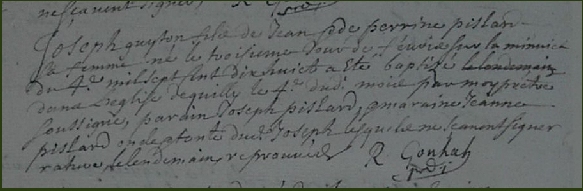 ne sçavent signer, R
Joseph guyton fils de Jean & de perrine pistard
sa femme né le troisieme Jour de feuvrier sur la minuict
du 4e mil sept cent dix huict a eté baptisé le lendemain
dans L'eglise de quilly le 4e dud. mois par moy pretre
soussigné, parain Joseph pistard, & maraine Jeanne
pistard oncle & tante dud. Joseph lesquels ne scavent signer
rature lelendemain, reprouvée R Gonhah